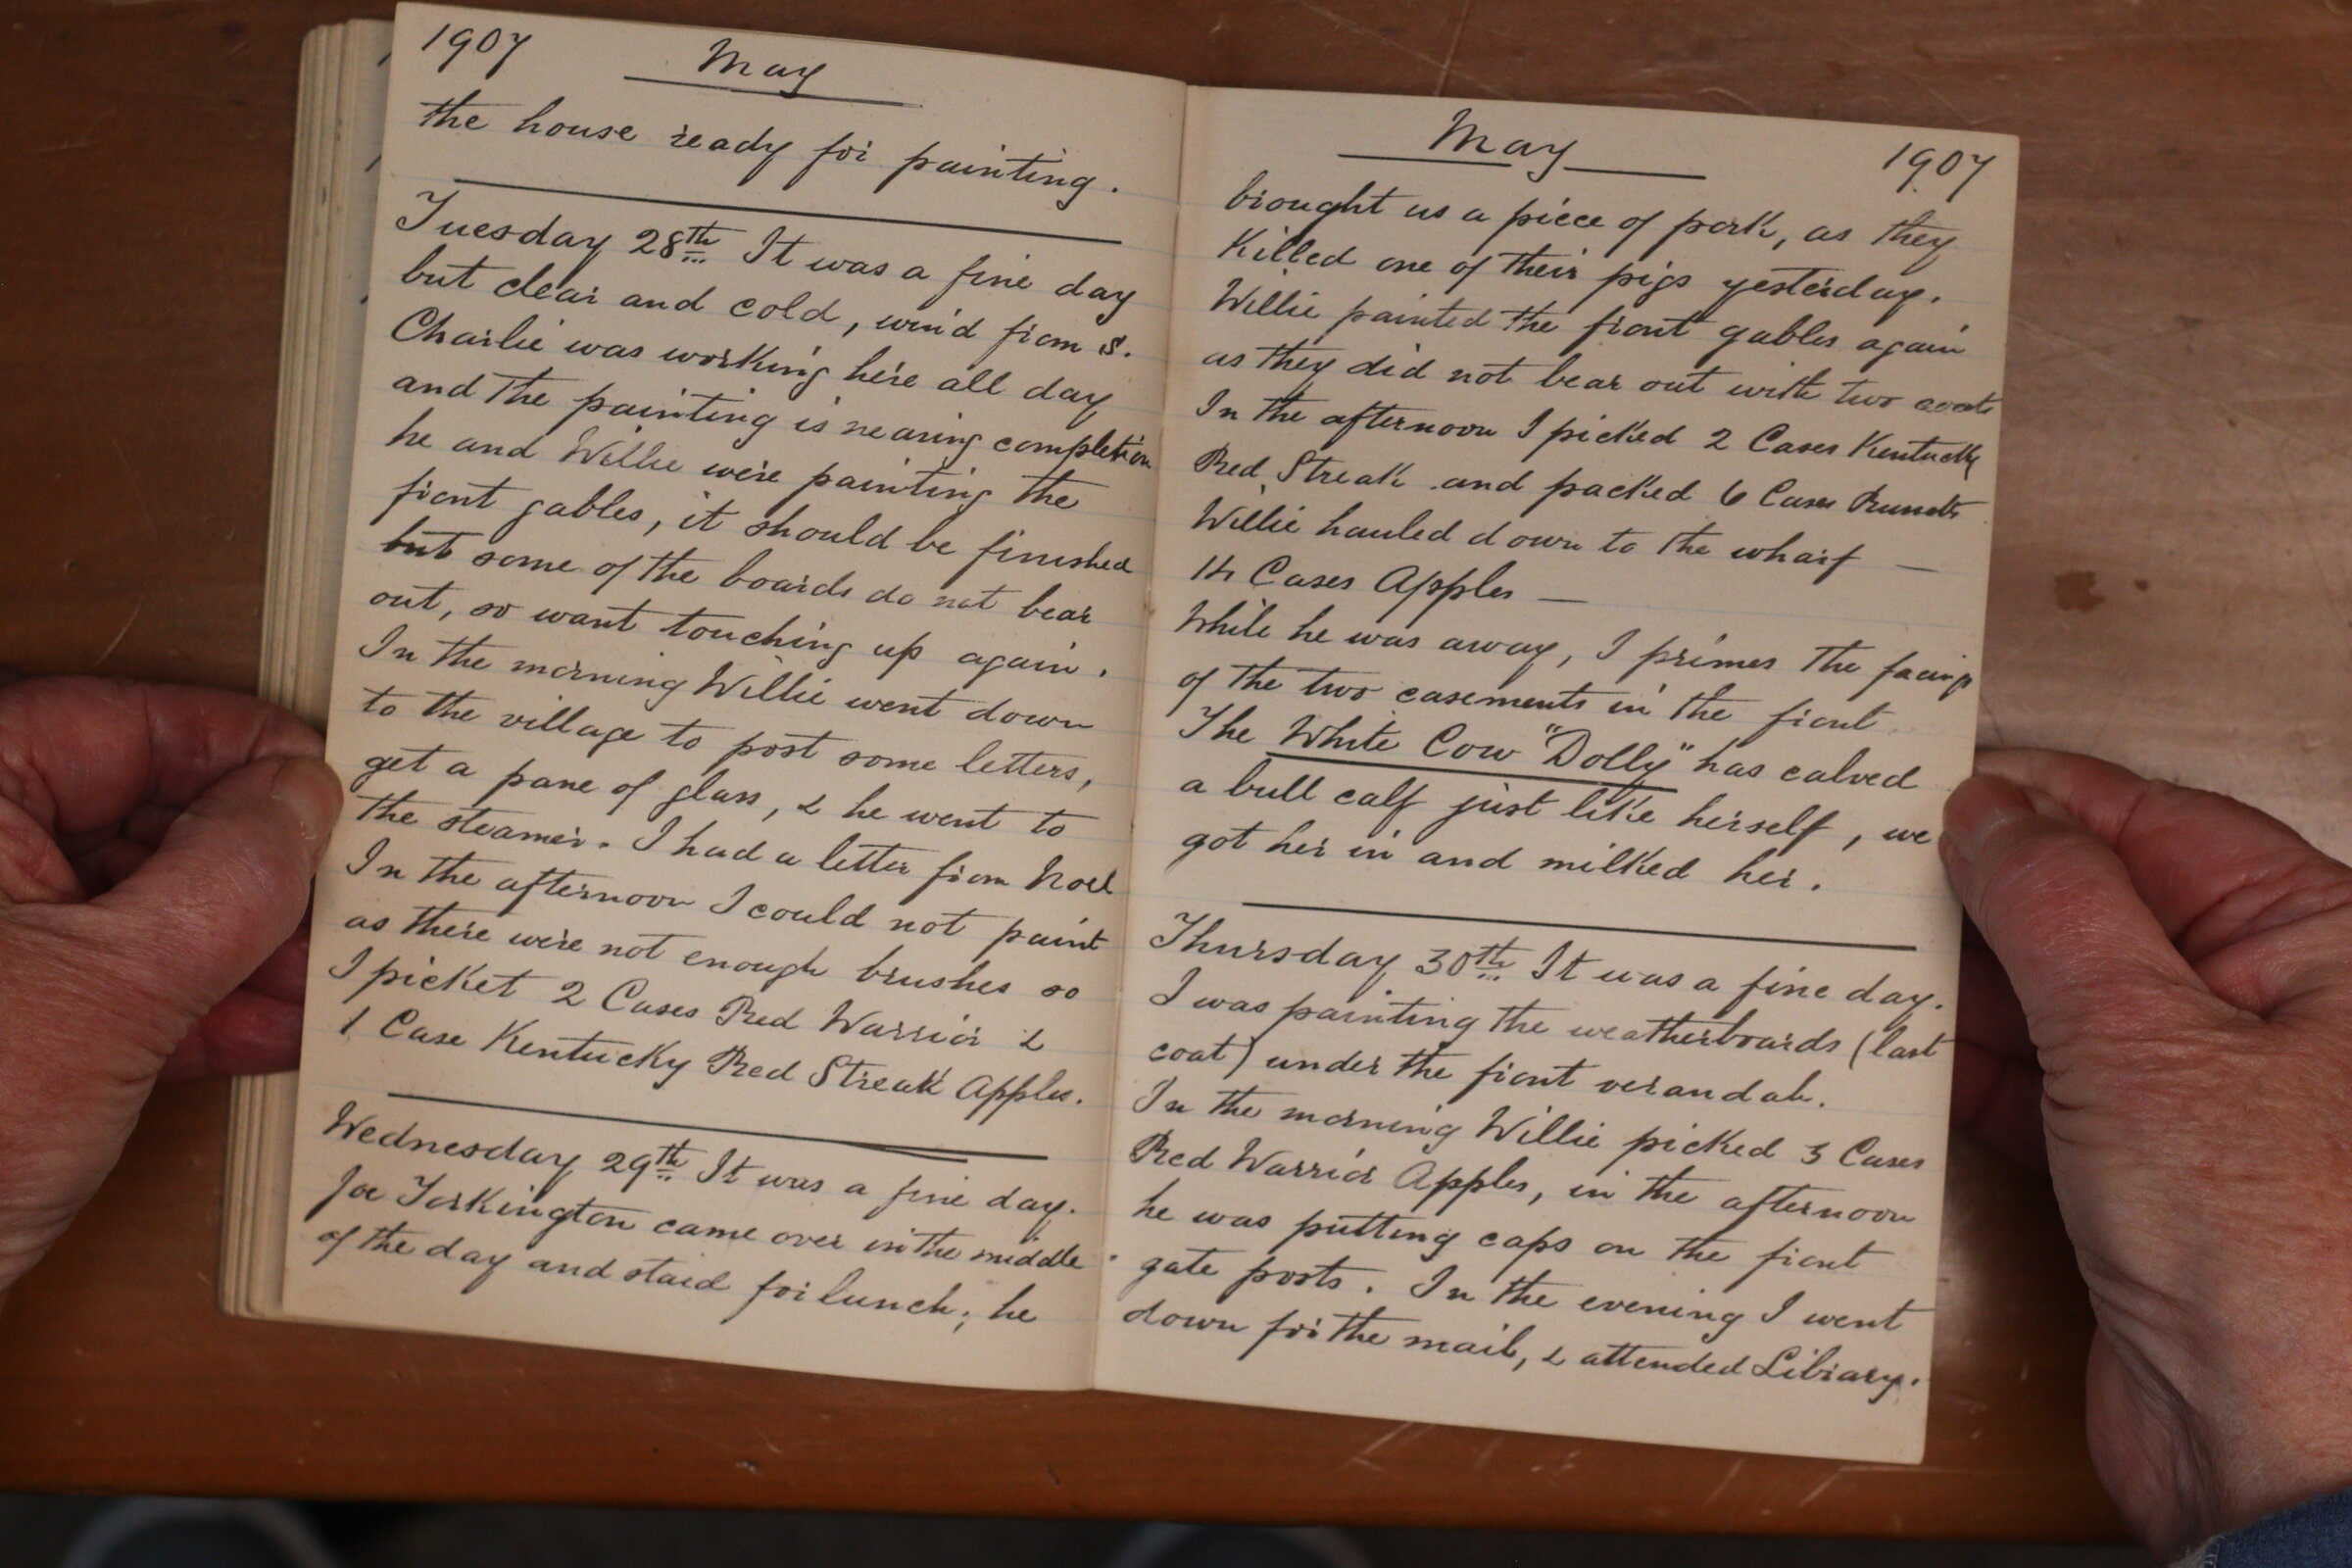 1907 May
the house ready for painting.
Tuesday 28th It was a fine day
but clear and cold, wind from S.
Charlie was working here all day
and the painting is nearing completion
he and Willie were painting the
front gables, it should be finished
but some of the boards do not bear
out, so want touching up again.
In the morning Willie went down
to the village to post some letters,
get a pane of glass, & he went to
the steamer. I had a letter from Noel
In the afternoon I could not paint
as there were not enough brushes so
I picket 2 Cases Red Warrior &
1 Case Kentucky Red Streak Apples.
Wednesday 29th It was a fine day.
Joe Torkington came over in the middle
of the day and staid for lunch; he
May 1907
brought us a piece of pork, as they
Killed one of their pigs yesterday.
Willie painted the front gables again
as they did not bear out with two coats
In the afternoon I picked 2 Cases Kentucky
Red Streak and packed 6 Cases
Willie hauled down to the wharf —
14 Cases Apples —
While he was away, I primes the facings
of the two casements in the front
The White Cow "Dolly" has calved
a bull calf just like herself, we
got her in and milked her.
Thursday 30th It was a fine day.
I was painting the weatherboards (last
coat) under the front verandah.
In the morning Willie picked 3 Cases
Red Warrior Apples, in the afternoon
he was putting caps on the front
gate posts. In the evening I went
down for the mail, & attended Library.